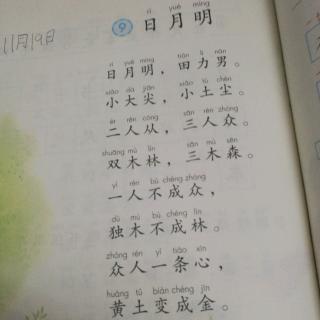 rì yuè míng
9 日月明
11月19日
rì yuè míng tián lì nán
日月明，田力男。
xiǎo dà jiān xiǎo tǔ chén
小大尖，小土尘。
èr rén cóng sān rén zhòng
二人从，三人众。
shuāng mù lín sān mù sēn
双木林，三木森。
yì rén bù chéng zhòng
一人不成众，
dú mù bù chéng lín
独木不成林。
zhòng rén yì tiáo xīn
众人一条心，
huáng tǔ biàn chéng jīn
黄土变成金。